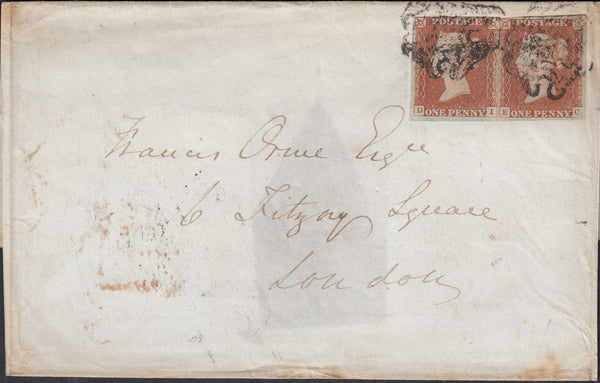 POSTAGE POSTAGE
ONE PENNY ONE PENNY
Francis Orme Esqre
6 Fitzroy Square
London